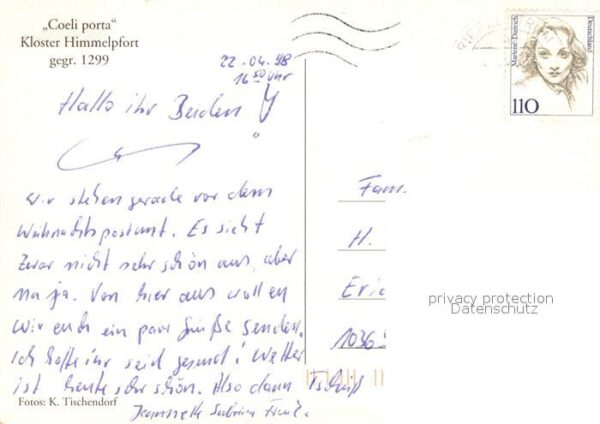 „Coeli porta"
Kloster Himmelpfort
gegr. 1299
22.04.98
16 50 Uhr
Hallo ihr Beiden!
wir stehen gerade vor dem
Weihnachtspostamt. Es sieht
zwar nicht sehr schön aus, aber
na ja. Von hier aus wollen
wir euch ein paar Grüße senden.
Ich hoffe ihr seid gesund! Wetter
ist heute sehr schön. Also dann Tschüß
Jeannette Sabrina
Fotos: K. Tischendorf
Marlene Dietrich
Deutschland
110
Fam.
H.
Eric
1036
privacy protection
Datenschutz